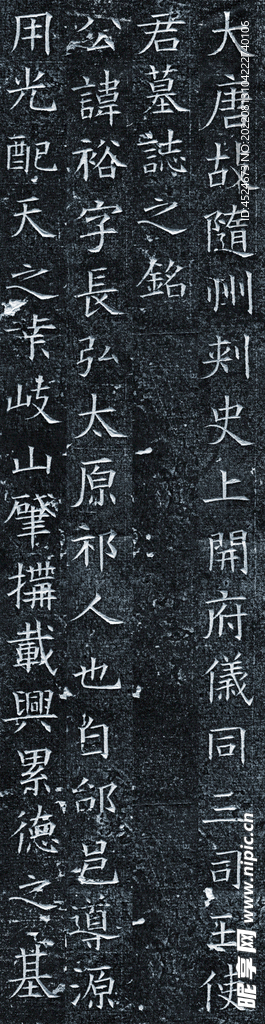 大唐故隨州刾史上開府儀同三司王使
君墓誌之銘
公諱裕字長弘太原祁人也自邰邑導源
用光配天之業岐山肇搆載興累德之基
昵享网 www.nipic.cn
ID:4524673 NO:20220813104222240106